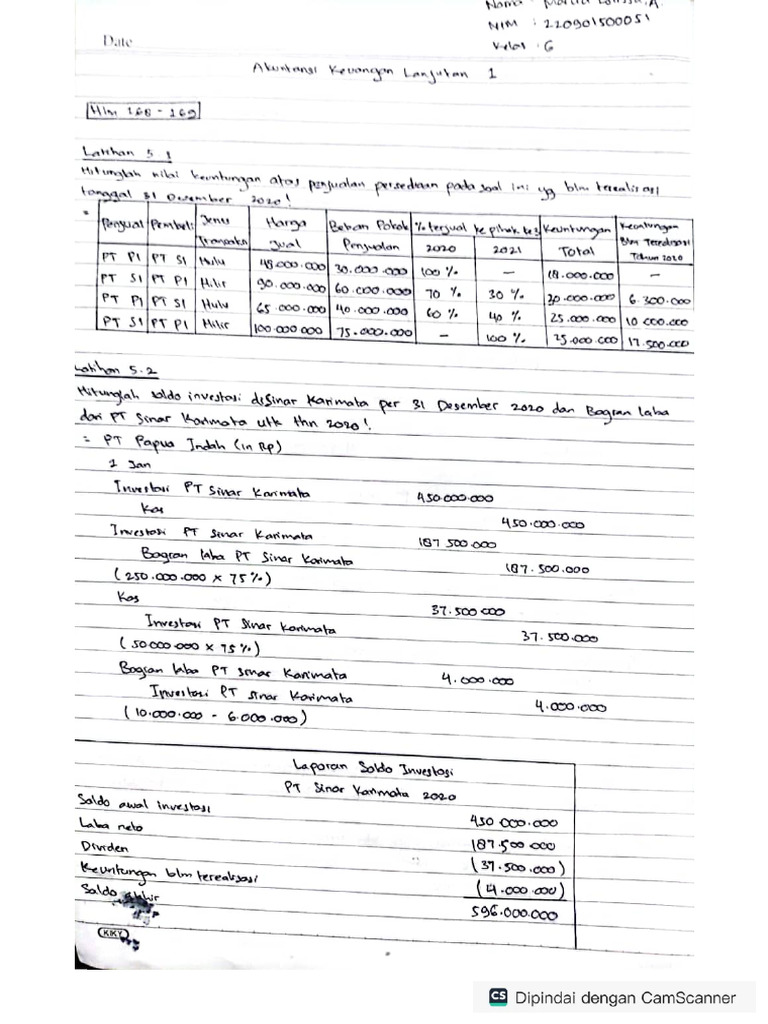 Nama : Martia A.
NIM : 220901500051
Kelas : G
Date
Akuntansi Keuangan Lanjutan 1
Hlm 168 - 169
Latihan 5.1
Hitunglah nilai keuntungan atas penjualan persediaan pada soal ini yg blm terealisasi
tanggal 31 Desember 2020!
= Penjual Pembeli Jenis Transaksi Harga Jual Beban Pokok Penjualan % terjual ke pihak ke3 2020 2021 Keuntungan Total Keuntungan Blm Terealisasi Tahun 2020
PT PI PT SI Hulu 48.000.000 30.000.000 100 % - 18.000.000 -
PT SI PT PI Hilir 90.000.000 60.000.000 70 % 30 % 30.000.000 6.300.000
PT PI PT SI Hulu 65.000.000 40.000.000 60 % 40 % 25.000.000 10.000.000
PT SI PT PI Hilir 100.000.000 75.000.000 - 100 % 25.000.000 17.500.000
Latihan 5.2
Hitunglah saldo investasi diSinar Karimata per 31 Desember 2020 dan Bagian laba
dari PT Sinar Karimata utk thn 2020!
= PT Papua Indah (in Rp)
1 Jan
Investasi PT Sinar Karimata 450.000.000
Kas 450.000.000
Investasi PT Sinar Karimata 187.500.000
Bagian laba PT Sinar Karimata 187.500.000
(250.000.000 x 75%)
Kas 37.500.000
Investasi PT Sinar Karimata 37.500.000
(50.000.000 x 75%)
Bagian laba PT Sinar Karimata 4.000.000
Investasi PT Sinar Karimata 4.000.000
(10.000.000 - 6.000.000)
Laporan Saldo Investasi
PT Sinar Karimata 2020
Saldo awal investasi 450.000.000
Laba neto 187.500.000
Dividen (37.500.000)
Keuntungan blm terealisasi (4.000.000)
Saldo akhir 596.000.000
KIKY
CS Dipindai dengan CamScanner